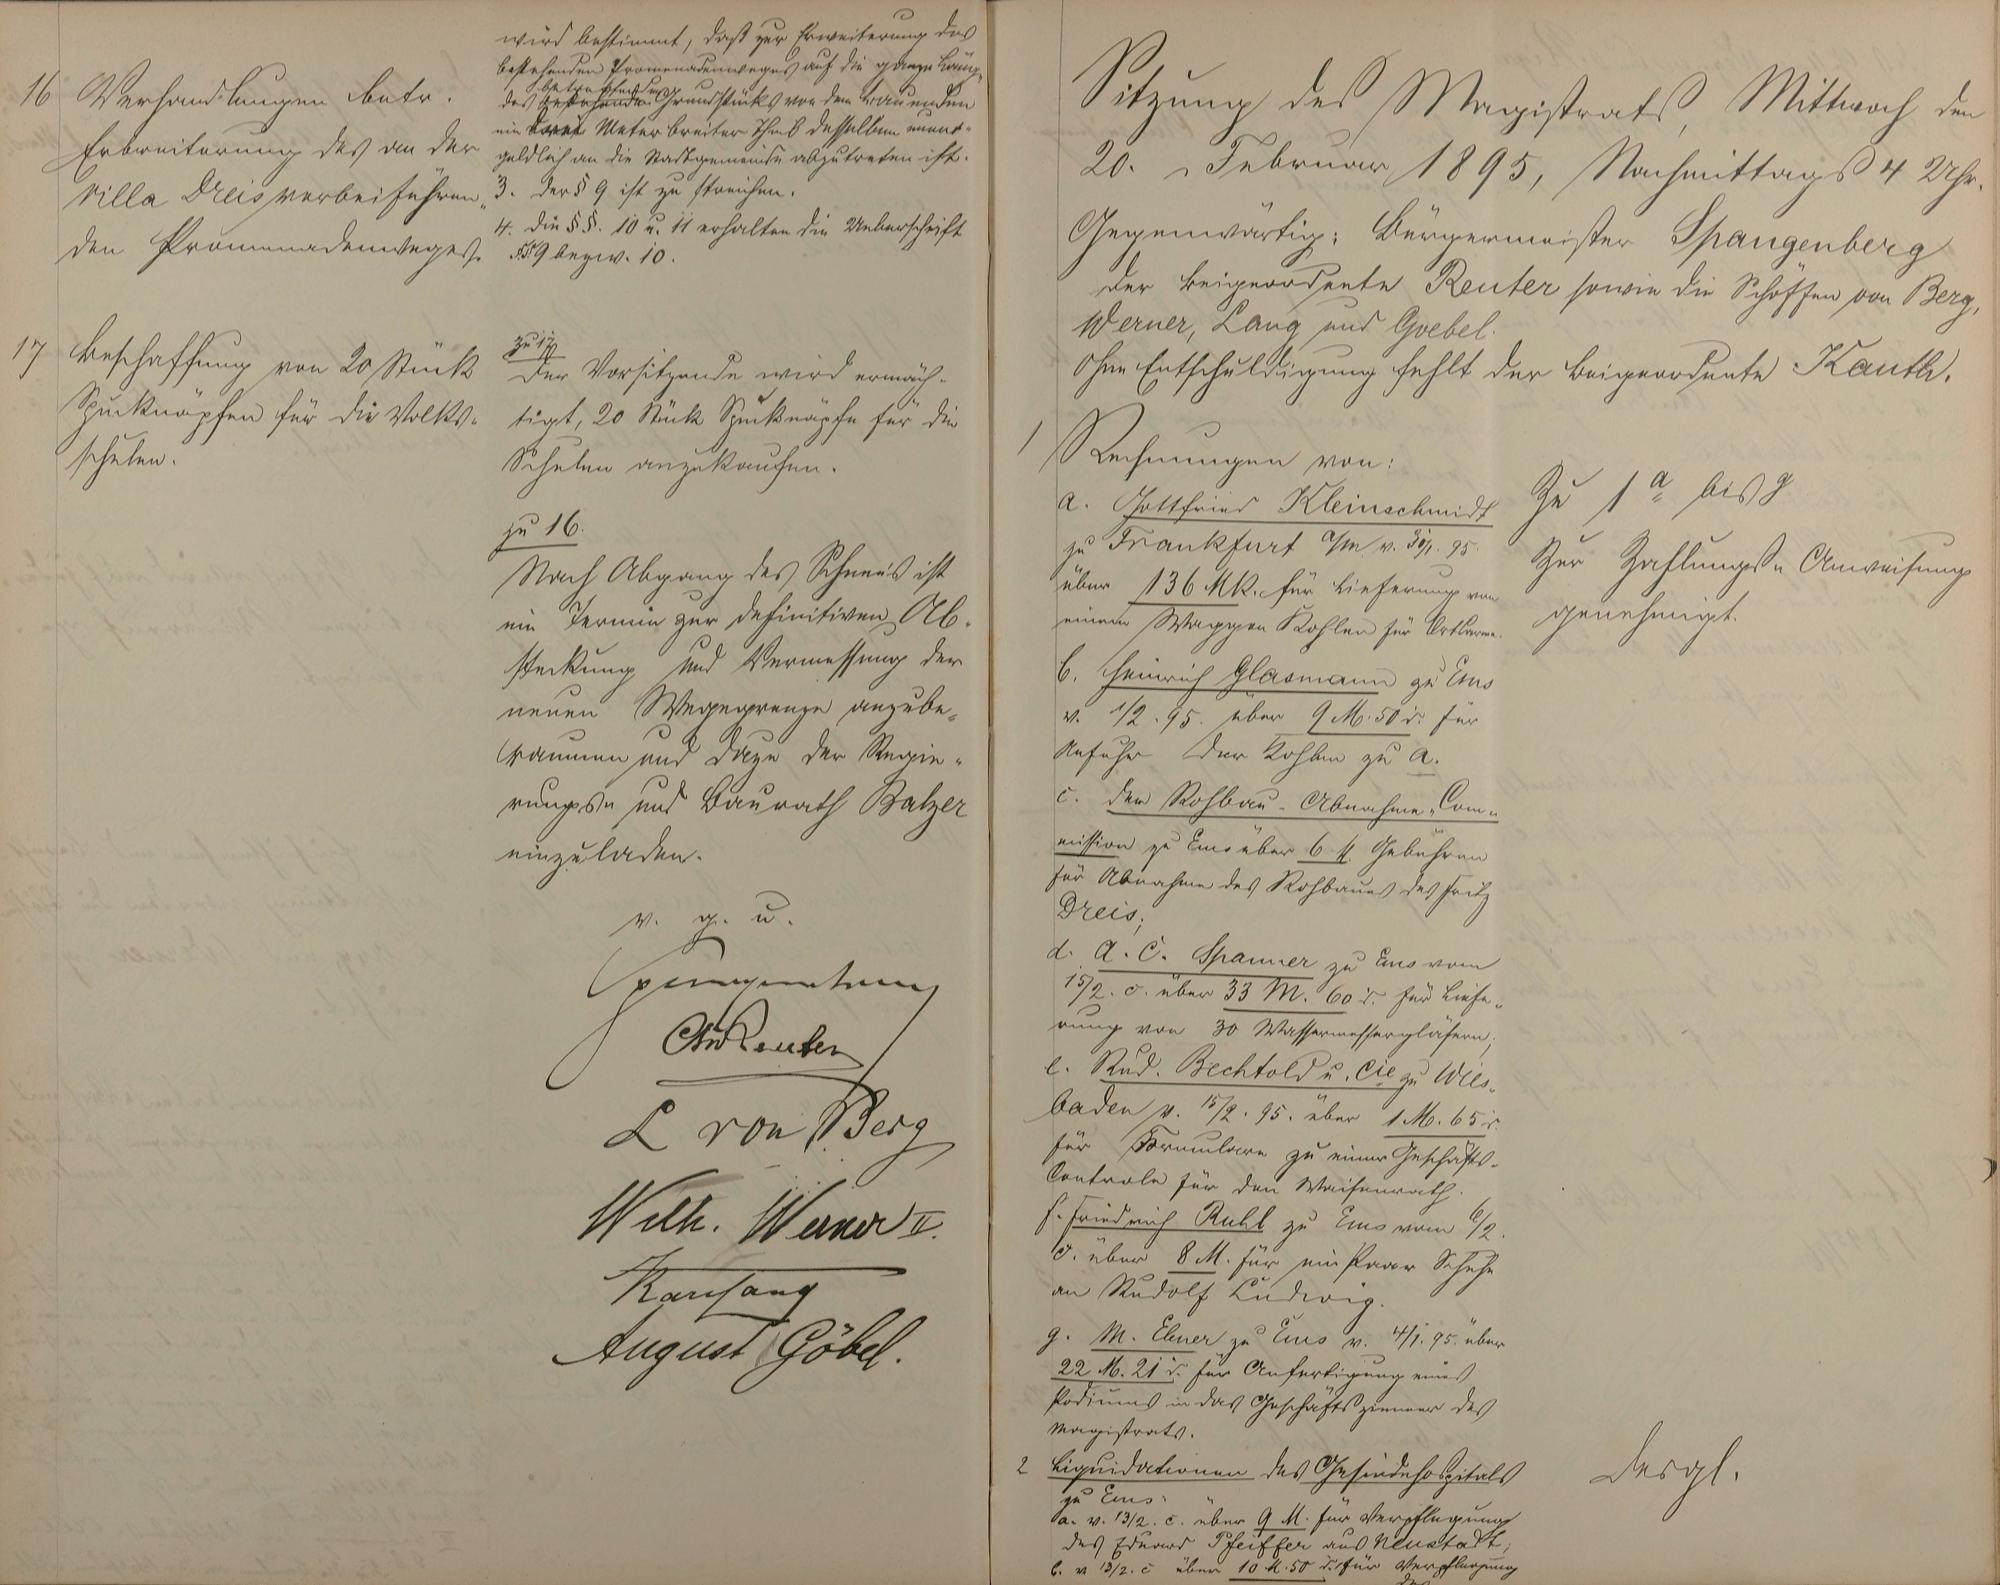 16 Verhandlungen betr.
Erbreiterung des an der
Villa Dreis vorbeiführen-
den Promenadenweges.
17 Beschaffung von 20 Stück
Spucknäpfen für die Volks-
schulen.
wird bestimmt, daß zur Erweiterung des
bestehenden Promenadenweges auf die ganze Länge
betreffenden
des Grundstücks von dem Bauenden
ein Meter breiter Theil desselben unent-
geldlich an die Stadtgemeinde abzutreten ist.
3. Der § 9 ist zu streichen.
4. Die §§. 10 u. 11 erhalten die Ueberschrift
§§ 9 bezw. 10.
zu 17
Der Vorsitzende wird ermäch-
tigt, 20 Stück Spucknäpfe für die
Schulen anzukaufen.
zu 16.
Nach Abgang des Schnees ist
ein Termin zur definitiven Ab-
steckung und Vermessung der
neuen Wegegrenze anzube-
raumen und dazu der Regie-
rungs- und Baurath Balzer
einzuladen.
v. g. u.
Spangenberg
Reuter
L von Berg
Wilh. Werner II.
Karl Lang
August Göbel.
Sitzung des Magistrats, Mittwoch den
20. Februar 1895, Nachmittags 4 Uhr.
Gegenwärtig: Bürgermeister Spangenberg
der Beigeordnete Reuter sowie die Schöffen von Berg,
Werner, Lang und Goebel.
Ohne Entschuldigung fehlt der Beigeordnete Kauth.
1 Rechnungen von:
a. Gottfried Kleinschmidt
zu Frankfurt a/m v. 30/1. 95.
über 136 Mk. für Lieferung von
einem Waggon Kohlen für Ortsarme.
b. Heinrich Glasmann zu Ems
v. 1/2. 95. über 9 M. 50 d. für
Anfuhr der Kohlen zu a.
c. der Rohbau-Abnahme-Com-
mission zu Ems über 6 M. Gebühren
für Abnahme des Rohbaues des Fritz
Dreis;
d. A. C. Spanner zu Ems vom
15/2. c. über 33 M. 60 d. für Liefe-
rung von 30 Wassermessergläsern;
e. Rud. Bechtold u. Cie zu Wies-
baden v. 15/2. 95. über 1 M. 65 d.
für Formulare zu einer Geschäfts-
Controle für den Waisenrath.
f. Friedrich Ruhl zu Ems vom 6/2.
c. über 8 M. für ein Paar Schuhe
an Rudolf Ludwig.
g. M. Elmer zu Ems v. 4/1. 95. über
22 M. 21 d. für Anfertigung eines
Podiums in das Geschäftszimmer des
Magistrats.
Zu 1 a bis g
Zur Zahlungs-Anweisung
genehmigt.
2 Liquidationen des Gesindehospitals
zu Ems:
a. v. 13/2. c. über 9 M. für Verpflegung
des Eduard Pfeiffer aus Neustadt;
b. v. 13/2. c über 10 M. 50 d. für Verpflegung
des
desgl.